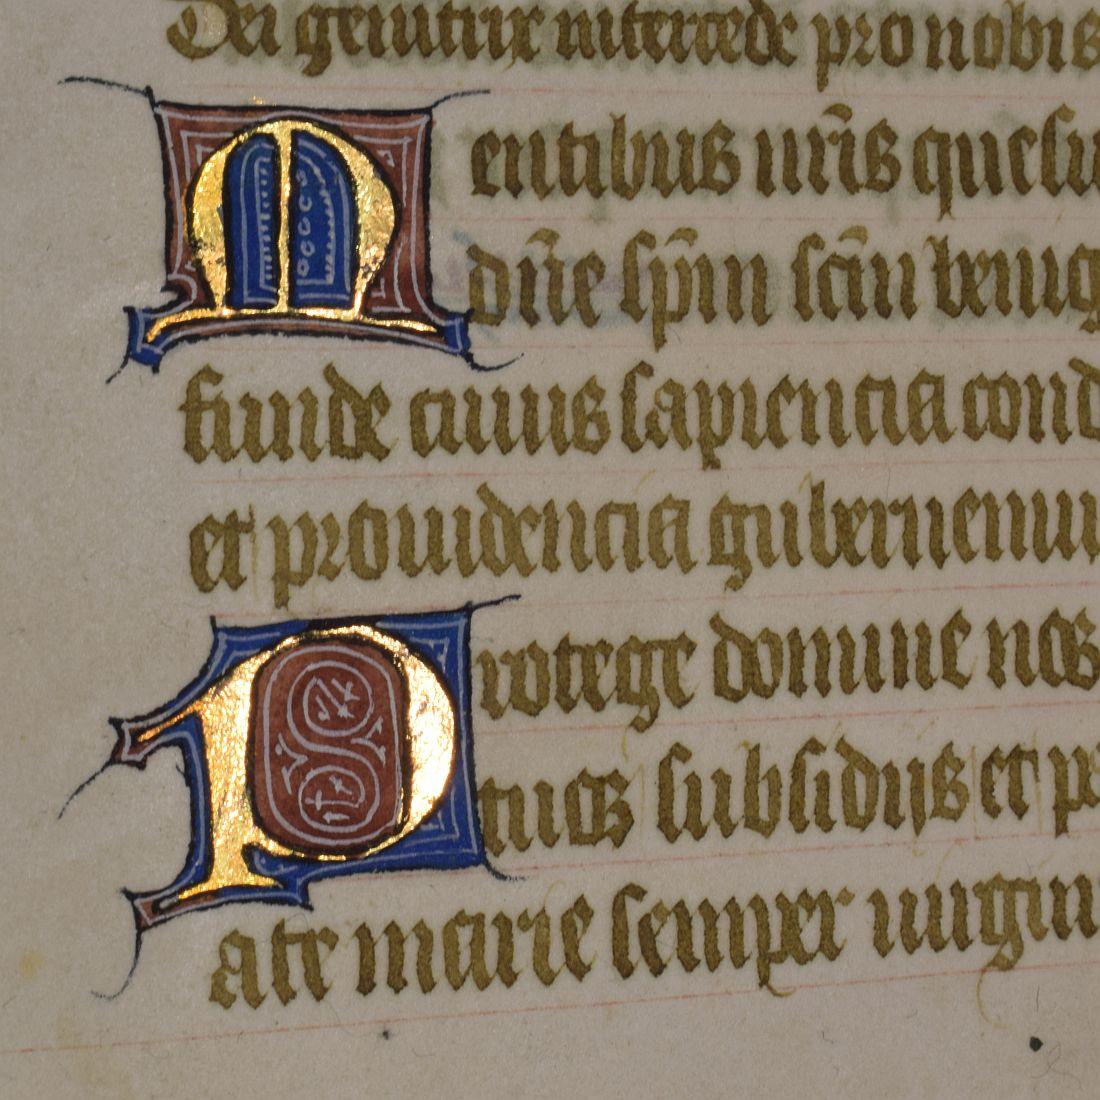 Dei genitrix intercede pro nobis
Mentibus nr̄is quesu
dn̄e sp̄m scm̄ benig
funde cuius sapiencia cond
et prouidencia gubernemu
Protege domine nos
tuos subsidijs et pe
ate marie semper uirgin